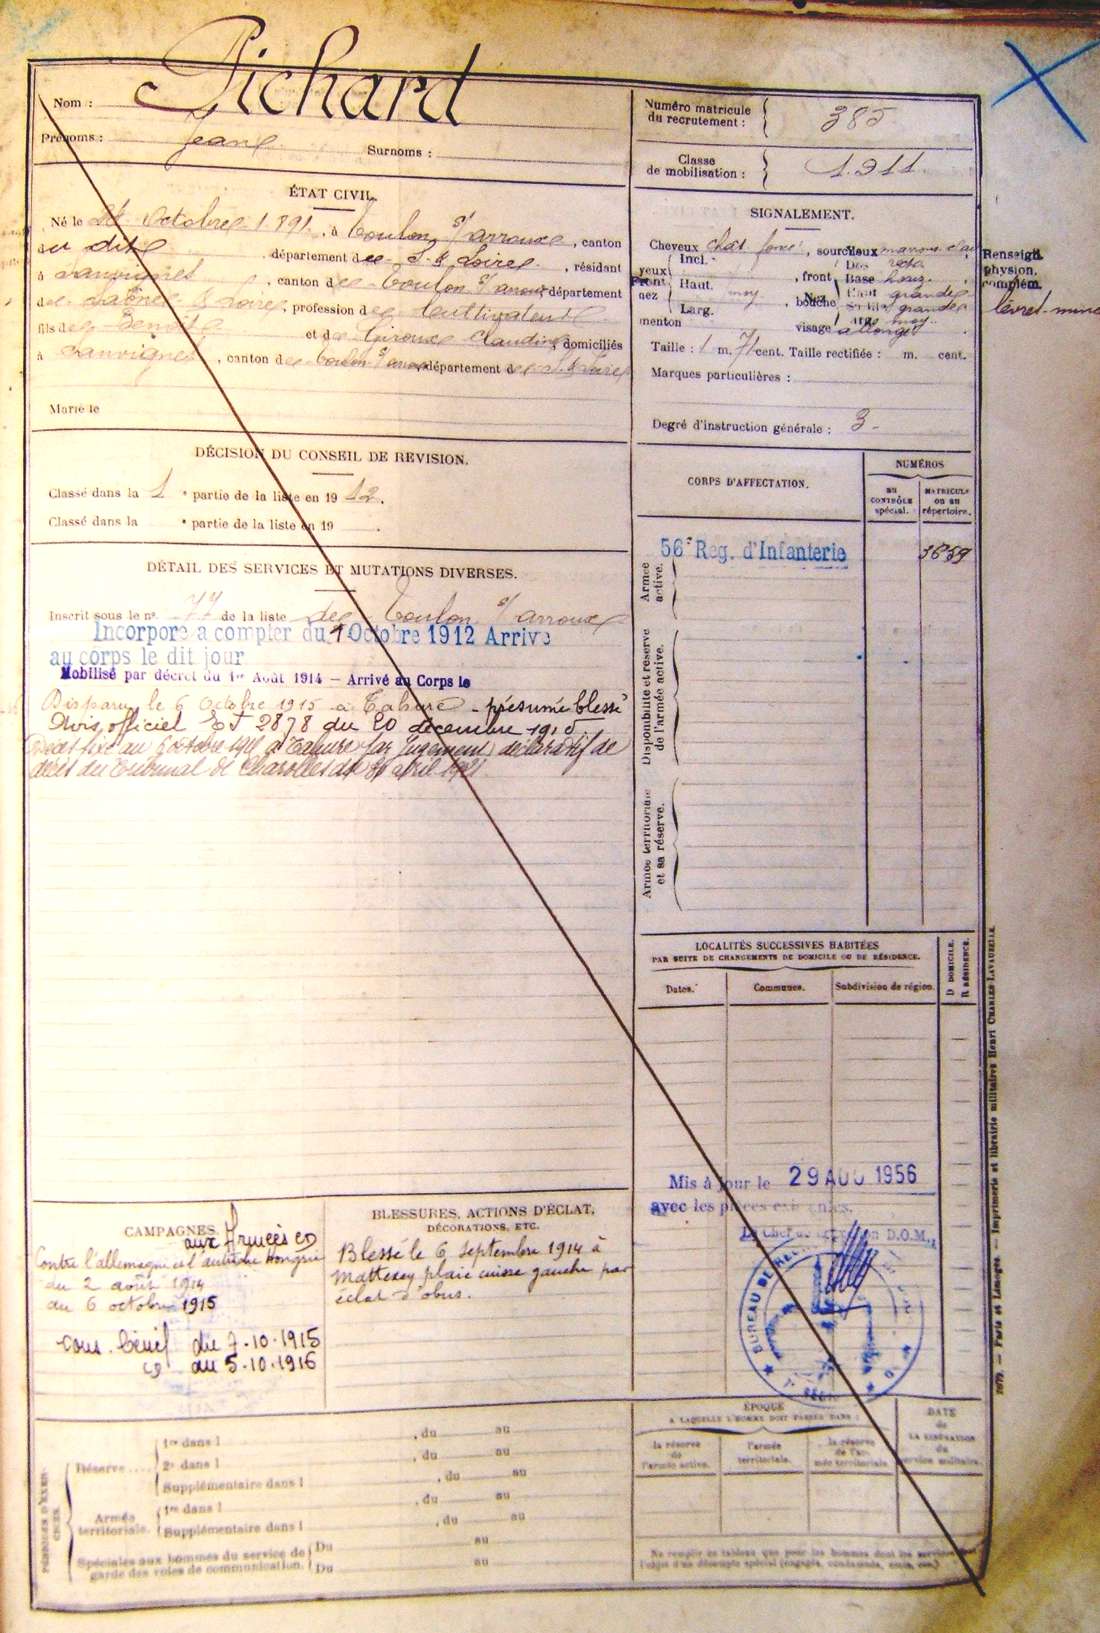 Nom : Pichard
Prénoms : Jean Surnoms :
ÉTAT CIVIL.
Né le Octobre 1891, à Toulon s/ arroux, canton
du dit, département de S. & Loire, résidant
à Sanvignes, canton de Toulon s/ arroux département
de Saône & Loire, profession de Cultivateur
fils de Benoit et de Claudine, domiciliés
à Sanvignes, canton de Toulon s/ arroux département de S. & Loire
Marié le
DÉCISION DU CONSEIL DE REVISION.
Classé dans la 1 e partie de la liste en 1912.
Classé dans la e partie de la liste en 19
DÉTAIL DES SERVICES ET MUTATIONS DIVERSES.
Inscrit sous le n° 77 de la liste de Toulon s/ arroux
Incorporé à compter du Octobre 1912 Arrivé
au corps le dit jour
Mobilisé par décret du 1er Août 1914 – Arrivé au Corps le
Disparu le 6 Octobre 1915 à Tahure - présumé blessé
Avis officiel 2878 du 20 décembre 1915
au 6 octobre 1915 à Tahure par Jugement déclaratif de
décès du Tribunal de Charolles du avril 1921
CAMPAGNES.
aux Armées
Contre l'allemagne et autriche hongrie
du 2 août 1914
au 6 octobre 1915
du 7-10-1915
au 5-10-1916
BLESSURES, ACTIONS D'ÉCLAT,
DÉCORATIONS, ETC.
Blessé le 6 septembre 1914 à
Mattexey plaie cuisse gauche par
éclat d'obus.
PÉRIODES D'EXERCICES.
Réserve....
1re dans l , du au
2e dans l , du au
Supplémentaire dans l , du au
Armée territoriale.
1re dans l , du au
Supplémentaire dans l , du au
Spéciales aux hommes du service de
garde des voies de communication.
Du au
Du au
Numéro matricule
du recrutement : 385
Classe
de mobilisation : 1911.
SIGNALEMENT.
Cheveux chat. foncé, sourcils
Yeux
Front
Incl.
Haut. moy
Larg.
Nez
Dos
Base
Haut grande
Saillie grande
Larg moy.
yeux
front
nez
bouche
menton
visage allongé
Renseigts
physion.
complém.
Taille : 1 m. 71 cent. Taille rectifiée : m. cent.
Marques particulières :
Degré d'instruction générale : 3
CORPS D'AFFECTATION.
NUMÉROS
au
CONTRÔLE
spécial.
MATRICULE
ou au
répertoire.
56e Rég. d'Infanterie
Armée
active.
Disponibilité et réserve
de l'armée active.
Armée territoriale
et sa réserve.
LOCALITÉS SUCCESSIVES HABITÉES
PAR SUITE DE CHANGEMENTS DE DOMICILE OU DE RÉSIDENCE.
Dates.
Communes.
Subdivision de région.
D DOMICILE.
R RÉSIDENCE.
Mis à jour le 29 AOU 1956
avec les pièces
D.O.M.
BUREAU DE
ÉPOQUE
A LAQUELLE L'HOMME DOIT PASSER DANS :
la réserve
de
l'armée active.
l'armée
territoriale.
la réserve
de l'ar-
mée territoriale.
DATE
de
LA LIBÉRATION
du
service militaire.
Ne remplir ce tableau que pour les hommes dont les services font
l'objet d'un décompte spécial (engagés, condamnés, omis, etc.)
1679. — Paris et Limoges. — Imprimerie et librairie militaires Henri CHARLES-LAVAUZELLE.